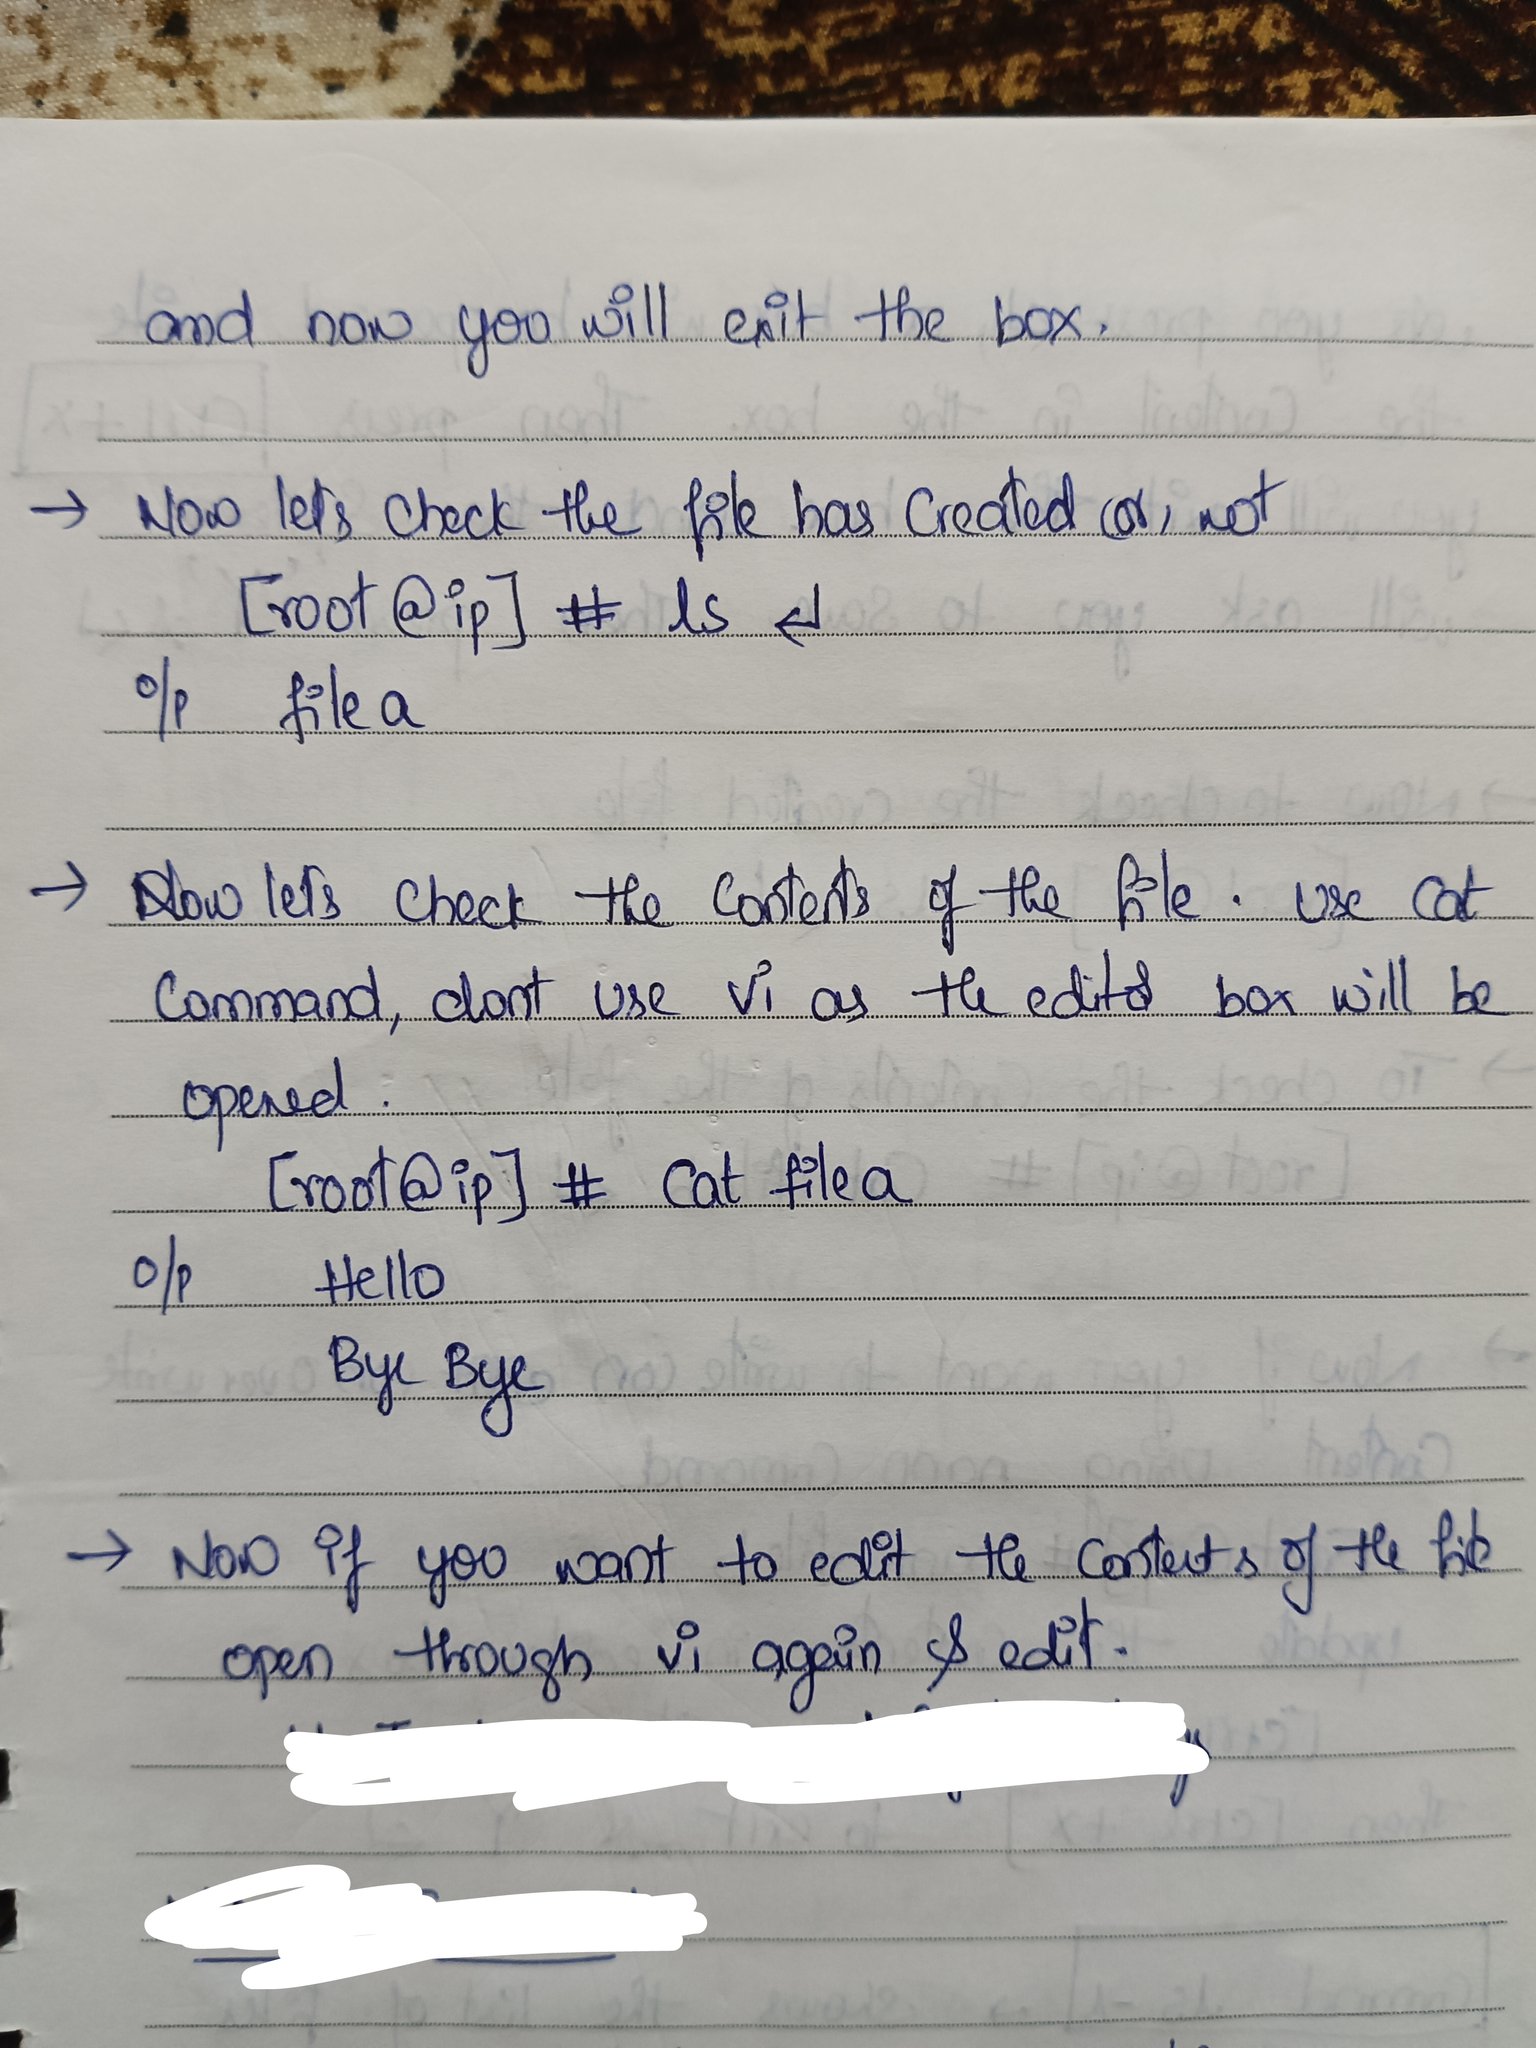 and now you will exit the box.
→ Now let's check the file has created (or) not
[root@ip] # ls ↵
o/p file a
→ Now let's check the contents of the file. use cat
Command, dont use vi as the editor box will be
opened.
[root@ip] # Cat file a
o/p Hello
Bye Bye
→ Now if you want to edit the contents of the file
open through vi again & edit.